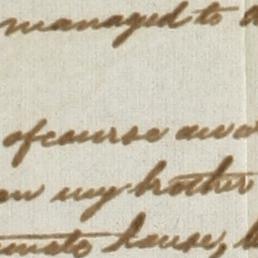 managed to
ofcourse awa
my brother
house,